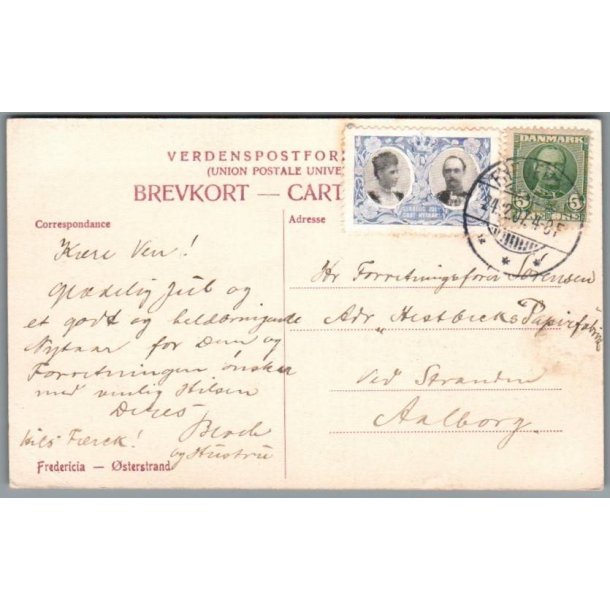 VERDENSPOSTFOR
(UNION POSTALE UNIVE
BREVKORT — CART
DANMARK
5 5
GODT NYTAAR
24.2.07.4-8F
Correspondance
Adresse
Kære Ven!
Glædelig Jul og
et godt og velsignende
Nytaar for Dem og
Forretningen ønsker
med venlig Hilsen
Deres
og Hustru
Hils Færck!
Hr Forretningsfører Sørensen
Adr "Hestbecks Papirfabrik
Ved Stranden
Aalborg.
Fredericia — Østerstrand